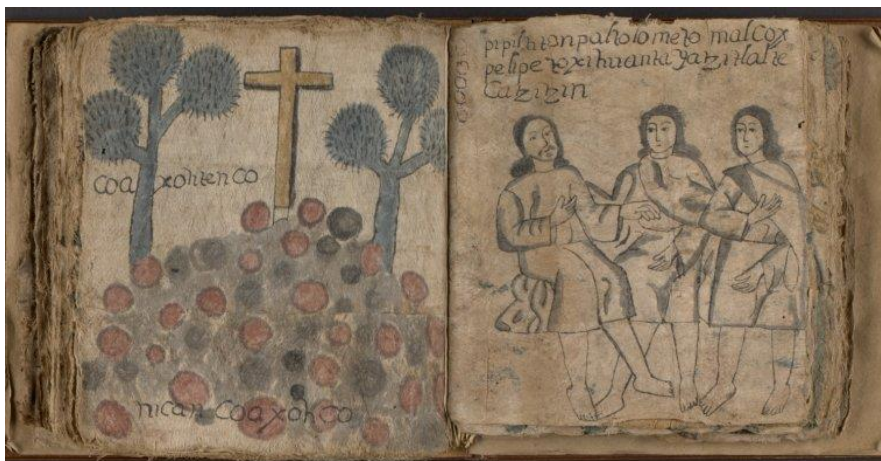 coaxohtenco
nican coaxohco
pipiltiton paholo mero malcox
pelipe toxihuanti yatzitlalte
Catzitzin